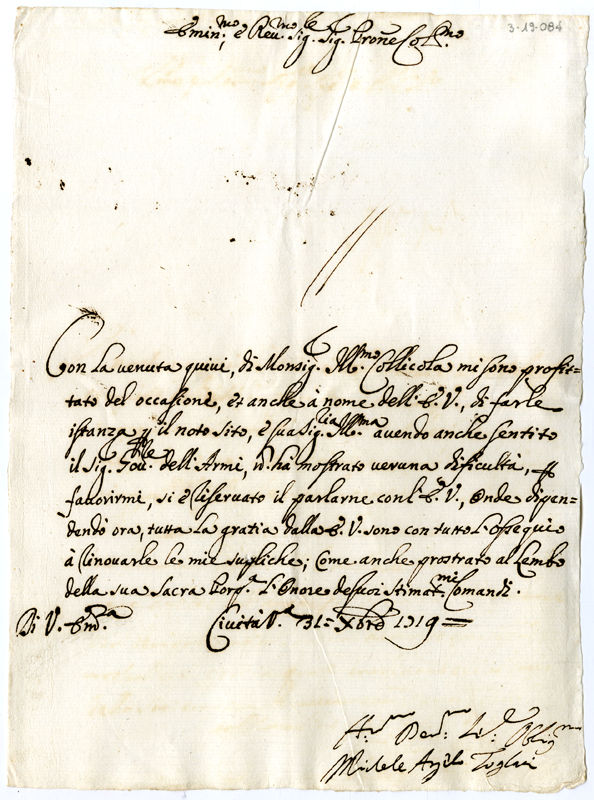 Emin.mo e Reu.mo Sig.le Sig. Prone Col.mo
3-19-084
Con la venuta quivi, di Monsig.r Ill.mo Collicola mi sono profit=
tato del occasione, et anche à nome dell' E. V., di farle
istanza p il noto sito, e sua Sig.lia Ill.ma avendo anche sentito
il Sig. Gov.le dell' Armi, n' ha mostrato veruna dificultà, p
favorirmi, si è riservato il parlarne con l' E. V., Onde dipen=
dendo ora, tutta la gratia dalla E. V. sono con tutto l'ossequio
à rinovarle le mie supliche; Come anche prostrato al lembo
della sua Sacra Porp.a l'Onore de suoi stimat.mi Comandi.
Di V. Em.a Civita V.a 31= Xbre 1719=
H.mo Dev.mo Obblig.mo
Michele Angelo